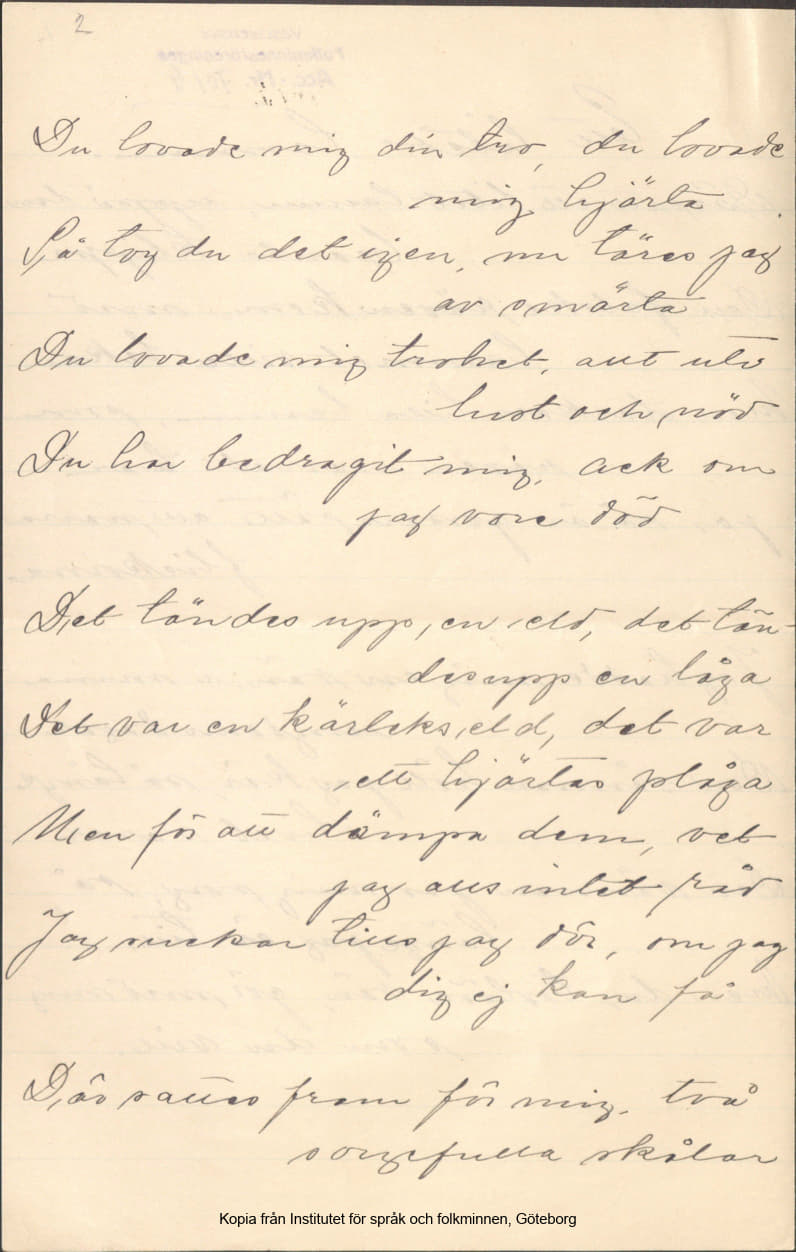 2
Du lovade mig din tro, du lovade
mig hjärta
Så tog du det igen, nu täres jag
av smärta
Du lovade mig trohet, allt uti
lust och nöd
Du har bedragit mig, ack om
jag vore död
Det tändes upp, en eld, det tän-
des upp en låga
Det var en kärleks, eld, det var
ett hjärtas plåga
Men för att dämpa dem, vet
jag alls intet råd
Jag suckar tills jag dör, om jag
dig ej kan få
Där sattes fram för mig, två
sorgefulla skålar
Kopia från Institutet för språk och folkminnen, Göteborg